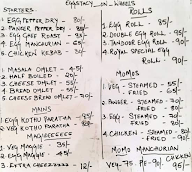 EGGSTACY ON WHEELS
STARTERS
1. EGG PEPPER DRY - 80/-
2. PANEER PEPPER DRY - 
3. EGG CAFE
4. EGG MANCHURIAN - 65/-
5. CHICKEN KEBAB - 30/-
1. MASALA OMLET - 45/-
2. HALF BOILED - 
3. CHEESE OMLET - 55/-
4. BREAD OMLET - 55/-
5. CHEESE BREAD OMLET - 70/-
MAINS
1. EGG KOTHU PARATHA - 
2. VEG KOTHU PARATHA
MAGIEEEEEE
1. VEG MAGGIE - 35/-
2. EGG MAGGIE - 45/-
3. EXTRA CHEEZZZZZ - 12/-
ROLLS
1. EGG ROLL - 85/-
2. DOUBLE EGG ROLL - 95/-
3. TANDOOR EGG ROLL - 90/-
4. ROYAL SPECIAL EGG
ROLL
MOMOS
1. VEG - STEAMED - 55/-
FRIED - 65/-
2. PANEER - STEAMED - 70/-
FRIED -
3. EGG - STEAMED - 70/-
FRIED - 80/-
4. CHICKEN - STEAMED - 80/-
FRIED - 90/-
MOMO MANCHURIAN
VEG - 75. PE - 90/. CHICKEN
95/-